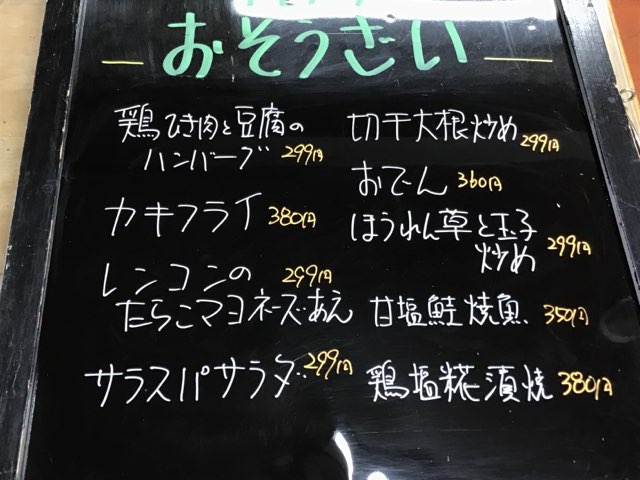 おそうざい
鶏ひき肉と豆腐の
ハンバーグ 299円
カキフライ 380円
レンコンの 299円
たらこマヨネーズあえ
サラスパサラダ 299円
切干大根炒め 299円
おでん 360円
ほうれん草と玉子
炒め 299円
甘塩鮭焼魚 350円
鶏塩糀漬焼 380円